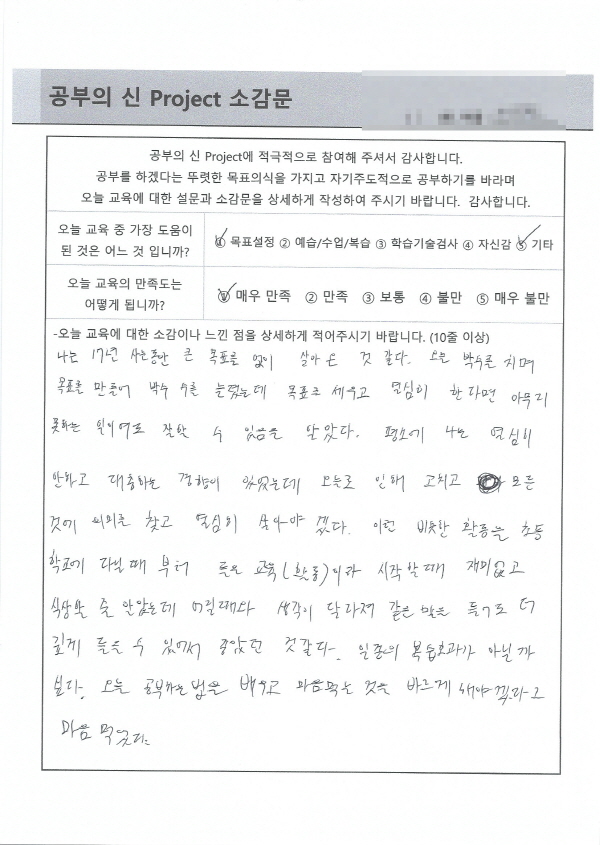 공부의 신 Project 소감문
공부의 신 Project에 적극적으로 참여해 주셔서 감사합니다.
공부를 하겠다는 뚜렷한 목표의식을 가지고 자기주도적으로 공부하기를 바라며
오늘 교육에 대한 설문과 소감문을 상세하게 작성하여 주시기 바랍니다. 감사합니다.
오늘 교육 중 가장 도움이
된 것은 어느 것 입니까?
① 목표설정 ② 예습/수업/복습 ③ 학습기술검사 ④ 자신감 ⑤ 기타
오늘 교육의 만족도는
어떻게 됩니까?
① 매우 만족 ② 만족 ③ 보통 ④ 불만 ⑤ 매우 불만
-오늘 교육에 대한 소감이나 느낀 점을 상세하게 적어주시기 바랍니다. (10줄 이상)
나는 17년 사는동안 큰 목표를 없이 살아 온 것 같다. 오늘 박수를 치며
목표를 만들어 박수 수를 늘렸는데 목표를 세우고 열심히 한다면 아무리
못하는 일이여도 잘할 수 있음을 알았다. 평소에 나는 열심히
안하고 대충하는 경향이 있었는데 오늘로 인해 고치고 모든
것에 의미를 찾고 열심히 살아야 겠다. 이런 비슷한 활동을 초등
학교에 다닐때 부터 들은 교육(활동)이라 시작할때 재미없고
식상할 줄 알았는데 어릴때와 생각이 달라져 같은 말을 듣기도 더
깊게 들을 수 있어서 좋았던 것같다. 일종의 복습효과가 아닐까
싶다. 오늘 공부하는 법을 배우고 마음먹은 것을 바르게 해야겠다고
마음 먹었다.